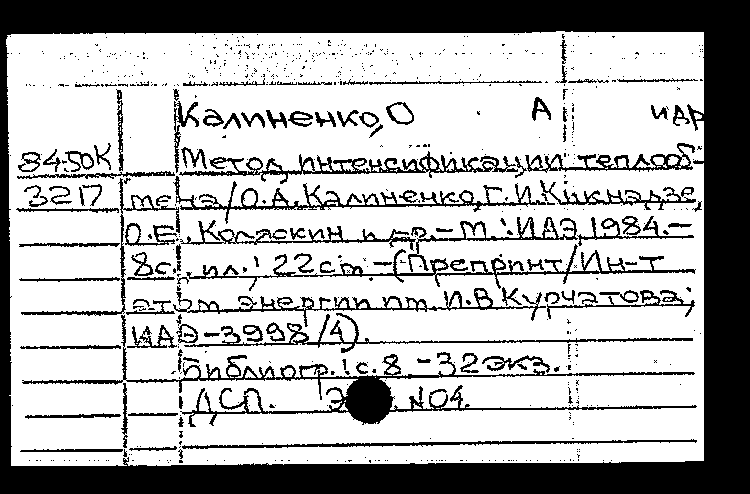 Калиненко, О А и др
84-50К Метод интенсификации теплооб-
3217 мена/О.А. Калиненко, Г.И. Кикнадзе,
О.Е. Коляскин и др.-М.: ИАЭ, 1984.-
8с., ил.; 22см.-(Препринт/Ин-т
атом энергии им. И.В Курчатова;
ИАЭ-3998/4).
Библиогр.: с.8.-32 экз.
ДСП. №04.